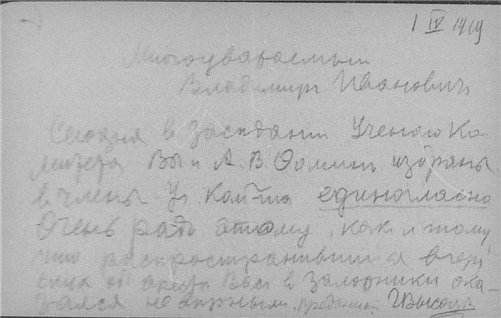 1 IV 1919
Многоуважаемый
Владимир Иванович
Сегодня в заседании Ученого Ко-
митета Вы и А.В. Фомин избраны
в члены Уч. Ком-та единогласно
Очень рад этому, как и тому
что распространившийся вчера
об аресте Вас в заложники ока-
зался неверным. Преданный